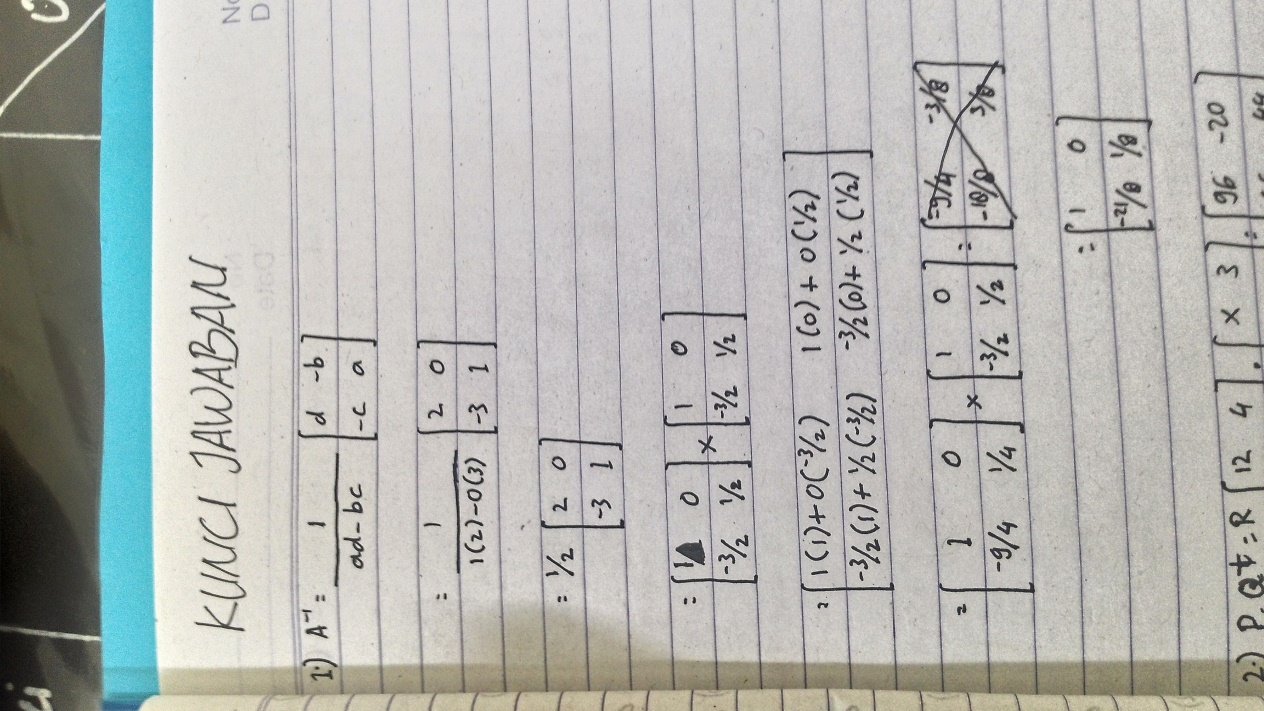 KUNCI JAWABAN
1.) A⁻¹ = 1 / ad-bc [d -b]
[-c a]
= 1 / 1(2)-0(3) [2 0]
[-3 1]
= 1/2 [2 0]
[-3 1]
= [1 0] × [1 0]
[-3/2 1/2] [-3/2 1/2]
= [1(1)+0(-3/2) 1(0)+0(1/2)]
[-3/2(1)+1/2(-3/2) -3/2(0)+1/2(1/2)]
= [1 0] × [1 0] =
[-9/4 1/4] [-3/2 1/2]
= [1 0]
[-21/8 1/8]
2.) P.Qt = R [12 4] . [x 3] = [96 -20]